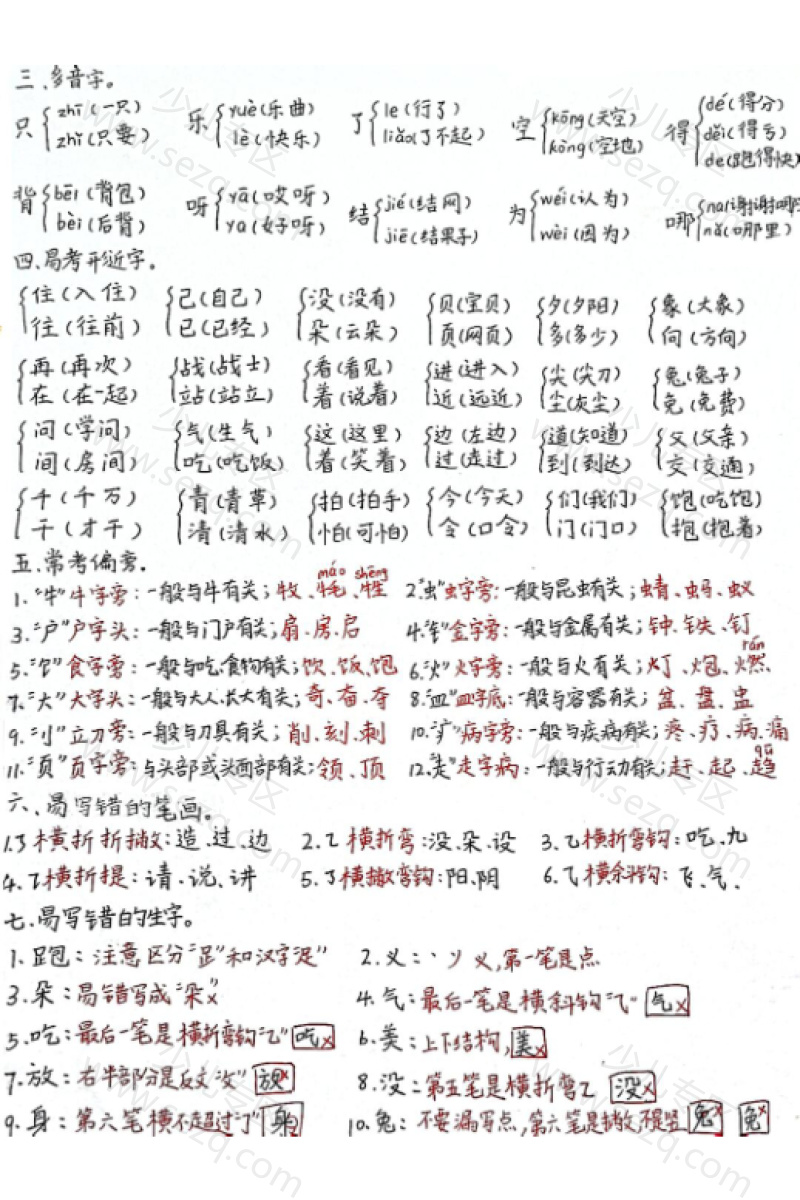 三、多音字。
只 zhī(一只) 乐 yuè(乐曲) 了 le(行了) 空 kōng(天空) 得 dé(得分)
zhǐ(只要) lè(快乐) liǎo(了不起) kòng(空地) děi(得亏)
de(跑得快)
背 bēi(背包) 呀 yā(哎呀) 结 jié(结网) 为 wéi(认为) 哪 na(谢谢哪)
bèi(后背) ya(好呀) jiē(结果子) wèi(因为) nǎ(哪里)
四、易考形近字。
住(入住) 己(自己) 没(没有) 贝(宝贝) 夕(夕阳) 象(大象)
往(往前) 已(已经) 朵(云朵) 页(网页) 多(多少) 向(方向)
再(再次) 战(战士) 看(看见) 进(进入) 尖(尖刀) 兔(兔子)
在(在一起) 站(站立) 着(说着) 近(远近) 尘(灰尘) 免(免费)
问(学问) 气(生气) 这(这里) 边(左边) 道(知道) 父(父亲)
间(房间) 吃(吃饭) 着(笑着) 过(走过) 到(到达) 交(交通)
千(千万) 青(青草) 拍(拍手) 今(今天) 们(我们) 饱(吃饱)
干(才干) 清(清水) 怕(可怕) 令(口令) 门(门口) 抱(抱着)
五、常考偏旁。
máo shēng
1.“牜”牛字旁:一般与牛有关;牧、牦、牲 2.“虫”虫字旁:一般与昆虫有关;蜻、蚂、蚁
3.“户”户字头:一般与门户有关;扇、房、启 4.“钅”金字旁:一般与金属有关;钟、铁、钉
rán
5.“饣”食字旁:一般与吃、食物有关;饮、饭、饱 6.“火”火字旁:一般与火有关;灯、炮、燃
7.“大”大字头:一般与大人、长大有关;奇、奋、夺 8.“皿”皿字底:一般与容器有关;盆、盘、盅
9.“刂”立刀旁:一般与刀具有关;削、刻、刺 10.“疒”病字旁:一般与疾病有关;疼、疗、病、痛
qū
11.“页”页字旁:与头部或头面部有关;领、顶 12.“走”走字病:一般与行动有关;赶、起、趋
六、易写错的笔画。
1.㇋横折折撇:造、过、边 2.㇍横折弯:没、朵、设 3.乙横折弯钩:吃、九
4.㇊横折提:请、说、讲 5.㇌横撇弯钩:阳、阴 6.⺄横斜钩:飞、气、
七、易写错的生字。
1.跑:注意区分“𧾷”和汉字“足” 2.义:丶丿义,第一笔是点
3.朵:易错写成“朵”x 4.气:最后一笔是横斜钩“⺄” 气x
5.吃:最后一笔是横折弯钩“乙” 吃x 6.美:上下结构, 美x
7.放:右半部分是反文“攵” 放x 8.没:第五笔是横折弯㇍ 没x
9.身:第六笔横不超过“亅” 身x 10.兔:不要漏写点,第六笔是撇,不是竖 兔x 兔x
少儿专区
www.sezq.com